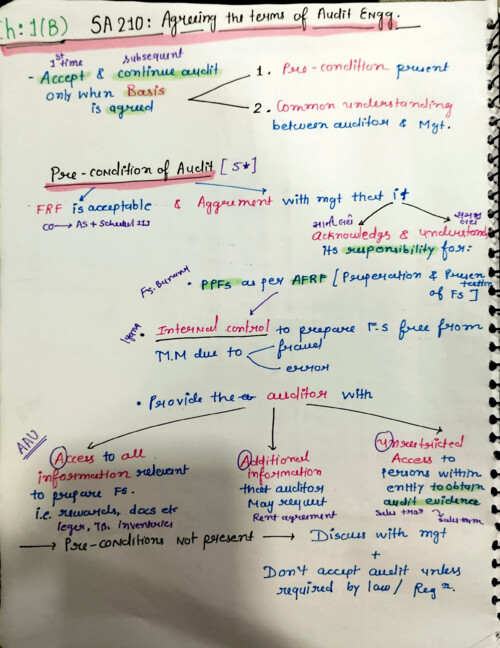 Ch: 1(B) SA 210: Agreeing the terms of Audit Engg.
1st time subsequent
- Accept & continue audit
only when Basis
is agreed
1. Pre-condition present
2. Common understanding
between auditor & Mgt.
Pre-condition of Audit [5*]
FRF is acceptable & Aggrement with mgt that it
CO → AS + Schedul III
acknowledgs & understands
its responsibility for:
• PPFs as per AFRF [Preperation & Presen
tation
of Fs]
• Internal control to prepare F.S free from
M.M due to fraud
error
• Provide the auditor with
AAU
Access to all
information relevant
to prepare Fs.
i.e. rewards, docs etc
leger, TB, inventories
Additional
information
that auditor
May request
Rent agreement
Unrestricted
Access to
persons within
entity to obtain
audit evidence
→ Pre-conditions Not present → Discuss with mgt
+
Don't accept audit unless
required by law / Regn.